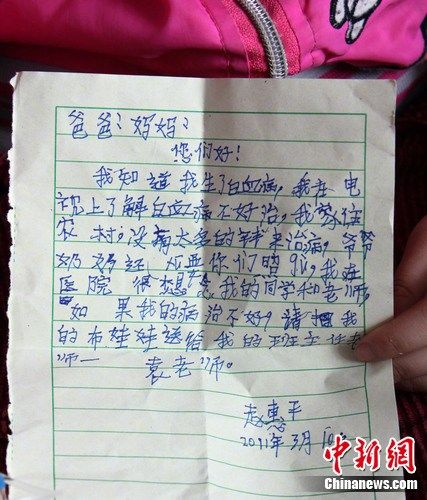 爸爸?妈妈?
您们好!
我知道我生了白血病,我在电
视上了解白血病不好治,我家住
农村,没有太多的钱来治病,爷爷
奶奶 要你们照顾,我在
医院很想念我的同学和老师,
如果我的病治不好,请把我
的布娃娃送给我的班主任老
师— 袁老师。
赵惠平
2011年3月10日
中新网
Chinanews.com